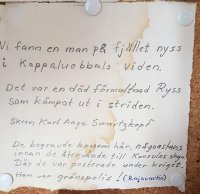 Vi fann en man på fjället nyss
i Koppaluobbals viden.
Det var en död förmultnad Ryss
som kämpat ut i striden.
Skrev Karl Aage Swartzkopf
De begravde honom här, någonstans
innan de återvände till Konsulns stuga
Där de var posterade under kriget.
Han var gränspolis! (Rajavartio)